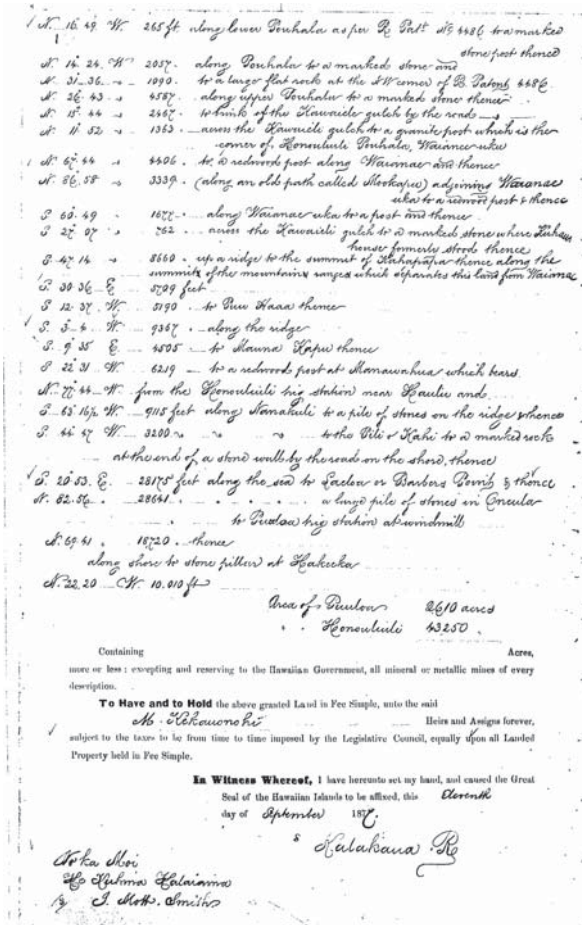 N. 16.49 W. 265 ft. along lower Pouhala as per R. Patt. No 4486 to a marked
stone post thence
N. 14.24. W 2057. along Pouhala to a marked stone and
N. 31.36 " 1090. to a large flat rock at the NW corner of R. Patent 4486.
N. 26.43 " 4567. along upper Pouhala to a marked stone thence
N. 15.44 " 2467. to brink of the Kawaiele gulch by the road
N. 11.52 " 1363. across the Kawaiele gulch to a granite post which is the
corner of Honouliuli Pouhala, Waianae uka
N. 67.44 " 4406. to a redwood post along Waianae and thence
N. 56.58 " 3339. (along an old path called Mookapu) adjoining Waianae
uka to a redwood post & thence
S. 60.49 " 1677. along Waianae uka to a post and thence
S. 27.07 " 762. across the Kawaiele gulch to a marked stone where
house formerly stood thence
S. 47.14 " 8660. up a ridge to the summit of thence along the
summit of the mountain ranges which separates this land from Waianae
S. 30.36. E 5709 feet
S. 12.37. W. 5190 to Puu Haaa thence
S. 3.4. W. 9367. along the ridge
S. 9.35 E. 4505 to Mauna Kapu thence
S. 22.31 W. 6219 to a redwood post at Manawahua which bears
N. 77.44 W. from the Honouliuli trig station near Kaulu and
S. 63.16½ W. 9115 feet along Nanakuli to a pile of stones on the ridge & thence
S. 44.47 W. 3200 " " " to the Pili o Kahi to a marked rock
at the end of a stone wall by the road on the shore, thence
S. 20.53. E. 28175 feet along the sea to Laeloa or Barbers Point & thence
N. 82.56. 28641. a large pile of stones in Oneula
to Puuloa trig station at windmill
N. 69.41. 16720 thence
along shore to stone pillar at
N. 22.20 W. 10.010 ft
Area of Puuloa 2610 acres
" . Honouliuli 43250 .
Containing Acres,
more or less: excepting and reserving to the Hawaiian Government, all mineral or metallic mines of every
description.
To Have and to Hold the above granted Land in Fee Simple, unto the said
M. Kekauonohi Heirs and Assigns forever,
subject to the taxes to be from time to time imposed by the Legislative Council, equally upon all Landed
Property held in Fee Simple.
In Witness Whereof, I have hereunto set my hand, and caused the Great
Seal of the Hawaiian Islands to be affixed, this Eleventh
day of September 1877.
Kalakaua R
No ka Moi
Ke Kuhina Kalaiaina
J. Mott. Smith